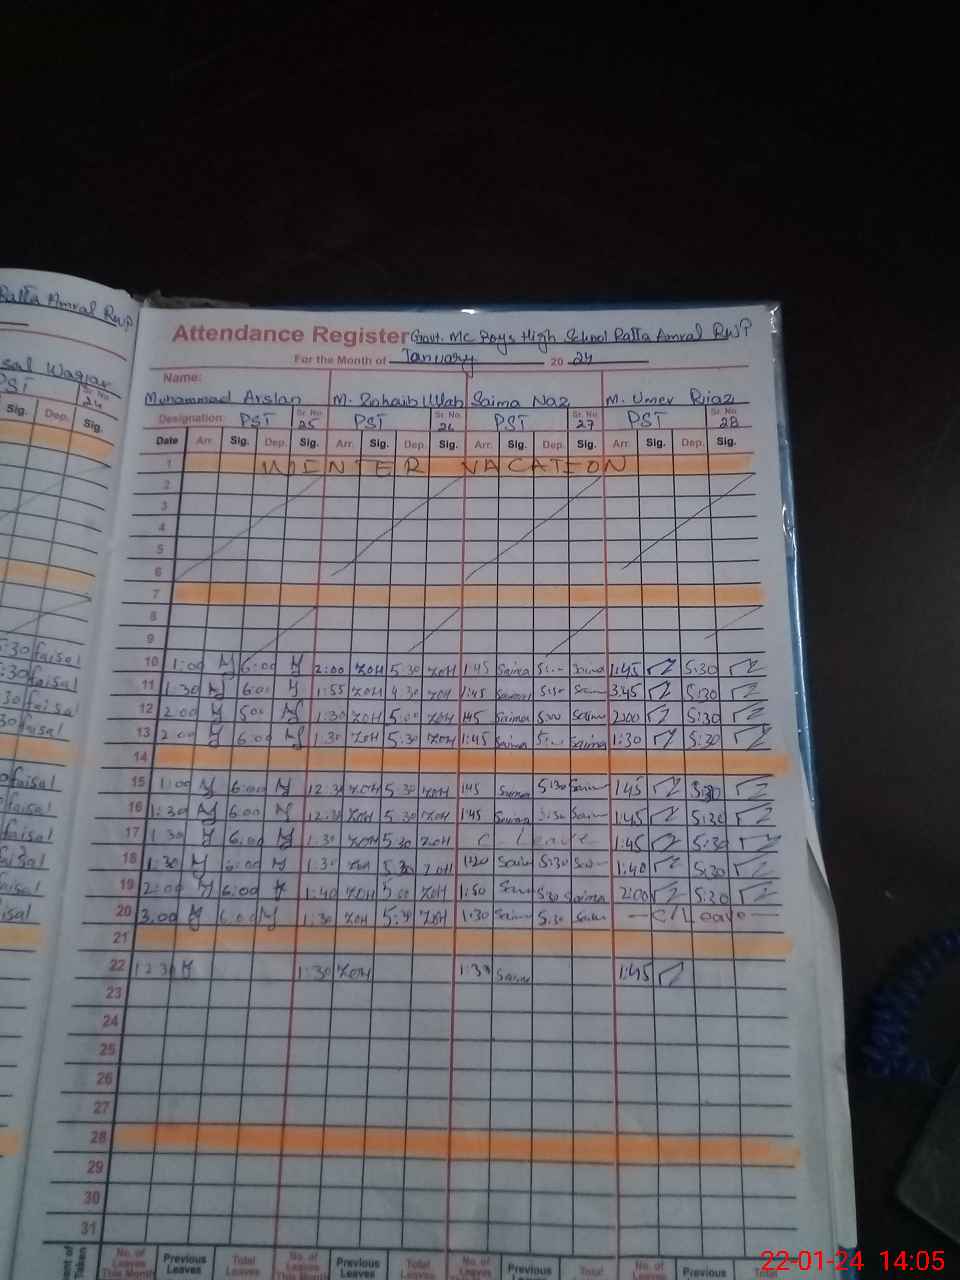 Ratta Amral RWP
Waqar
PST
Sr. No.
24
Sig. Dep. Sig.
5:30 faisal
:30 faisal
30 faisal
30 faisal
faisal
faisal
faisal
faisal
faisal
isal
Attendance Register Govt. MC Boys High School Ratta Amral RWP
For the Month of January 20 24
Name:
Muhammad Arslan M. Zohaib Ullah Saima Naz M. Umer Riaz
Designation: PST Sr. No. 25 PST Sr. No. 26 PST Sr. No. 27 PST Sr. No. 28
Date Arr. Sig. Dep. Sig. Arr. Sig. Dep. Sig. Arr. Sig. Dep. Sig. Arr. Sig. Dep. Sig.
1 WINTER VACATION
2
3
4
5
6
7
8
9
10 1:00 6:00 2:00 ZOH 5:30 ZOH 1:45 Saima Saima 1:45 5:30
11 1:30 6:00 1:55 ZOH 4:30 ZOH 1:45 5:30 3:45 5:30
12 2:00 5:00 1:30 ZOH 5:00 ZOH 1:45 Saima 5:00 Saima 2:00 5:30
13 2:00 6:00 1:30 ZOH 5:30 ZOH 1:45 Saima Saima 1:30 5:30
14
15 1:00 6:00 12:30 ZOH 5:30 ZOH 1:45 Saima 5:30 Saima 1:45 5:30
16 1:30 6:00 12:30 ZOH 5:30 ZOH 1:45 Saima 5:30 Saima 1:45 5:30
17 1:30 6:00 1:30 ZOH 5:30 ZOH C. Leave 1:45 5:30
18 1:30 6:00 1:30 ZOH 5:30 ZOH 1:20 Saima 5:30 1:40 5:30
19 2:00 6:00 1:40 ZOH 5:00 ZOH 1:50 5:30 Saima 2:00 5:30
20 3:00 6:00 1:30 ZOH 5:30 ZOH 1:30 Saima 5:30 Saima - C/Leave -
21
22 12:30 1:30 ZOH 1:30 Saima 1:45
23
24
25
26
27
28
29
30
31
No. of Leaves This Month Previous Leaves Total Leaves No. of Leaves This Month Previous Leaves Total Leaves No. of Leaves This Month Previous Leaves Total No. of Leaves This Month Previous Total
22-01-24 14:05